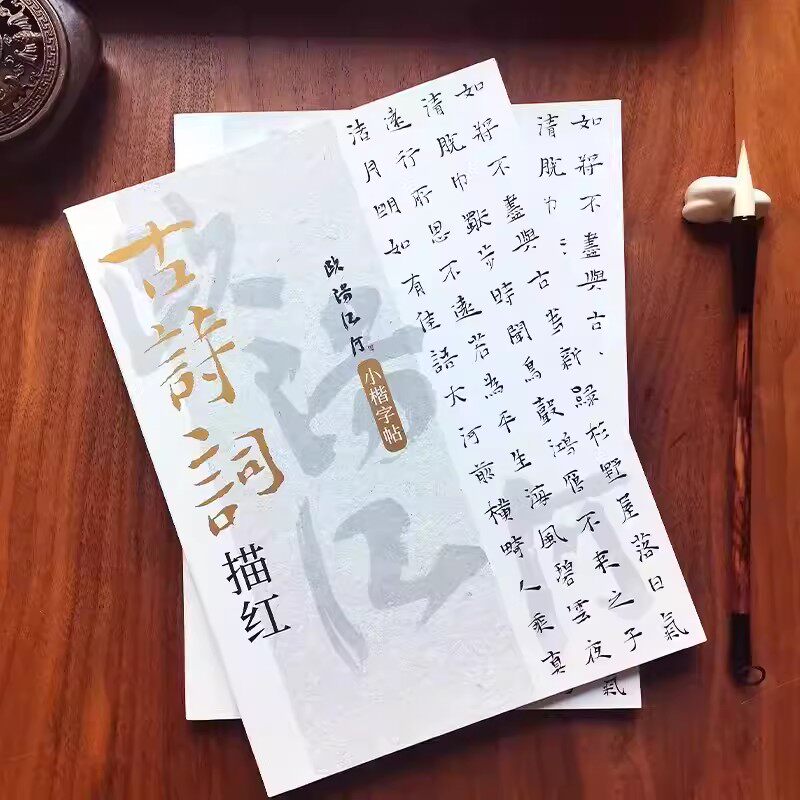 古詩詞
描红
歐陽江河
小楷字帖
如將不盡與古為新綠杉野屋落日氣
清脫巾獨步時聞鳥聲鴻鴈不来之子
遠行所思不遠若為平生海風碧雲夜
渚月明如有佳語大河前橫畸人乘真
如將不盡與古
清脫巾
氣